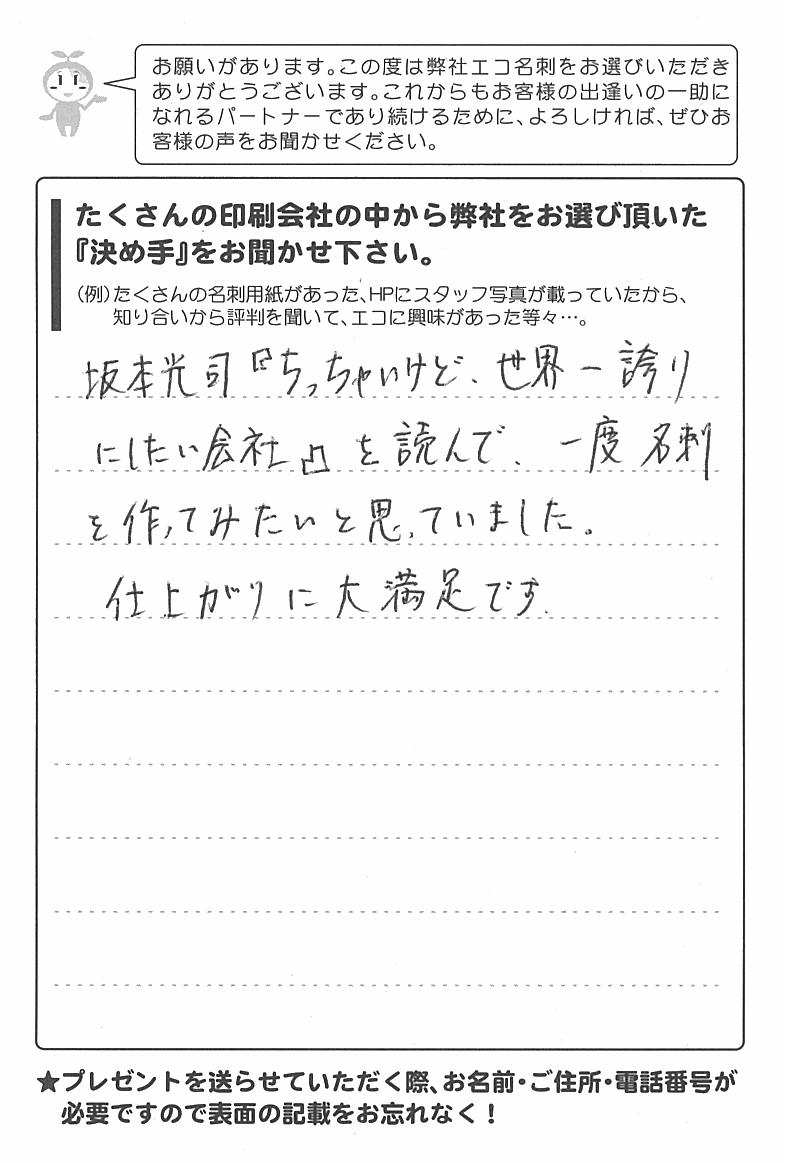 お願いがあります。この度は弊社エコ名刺をお選びいただき
ありがとうございます。これからもお客様の出逢いの一助に
なれるパートナーであり続けるために、よろしければ、ぜひお
客様の声をお聞かせください。
たくさんの印刷会社の中から弊社をお選び頂いた
『決め手』をお聞かせ下さい。
（例）たくさんの名刺用紙があった、HPにスタッフ写真が載っていたから、
知り合いから評判を聞いて、エコに興味があった等々…。
坂本光司『ちっちゃいけど、世界一誇り
にしたい会社』を読んで、一度名刺
を作ってみたいと思っていました。
仕上がりに大満足です.
★プレゼントを送らせていただく際、お名前・ご住所・電話番号が
必要ですので表面の記載をお忘れなく！